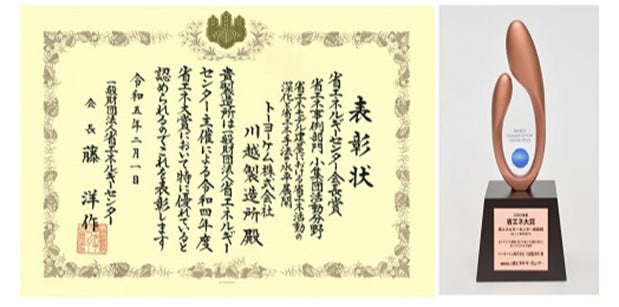 表彰状
省エネルギーセンター会長賞
省エネ事例部門 小集団活動分野
省エネモデル建屋における省エネ活動の
深化と省エネ手法の水平展開
トーヨーケム株式会社
川越製造所 殿
貴製造所は一般財団法人省エネルギー
センター主催による令和四年度
省エネ大賞において特に優れていると
認められるのでこれを表彰します
令和五年二月一日
一般財団法人省エネルギーセンター
会長 藤 洋作
ENERGY
CONSERVATION
GRAND PRIZE
省エネ大賞
省エネルギーセンター会長賞